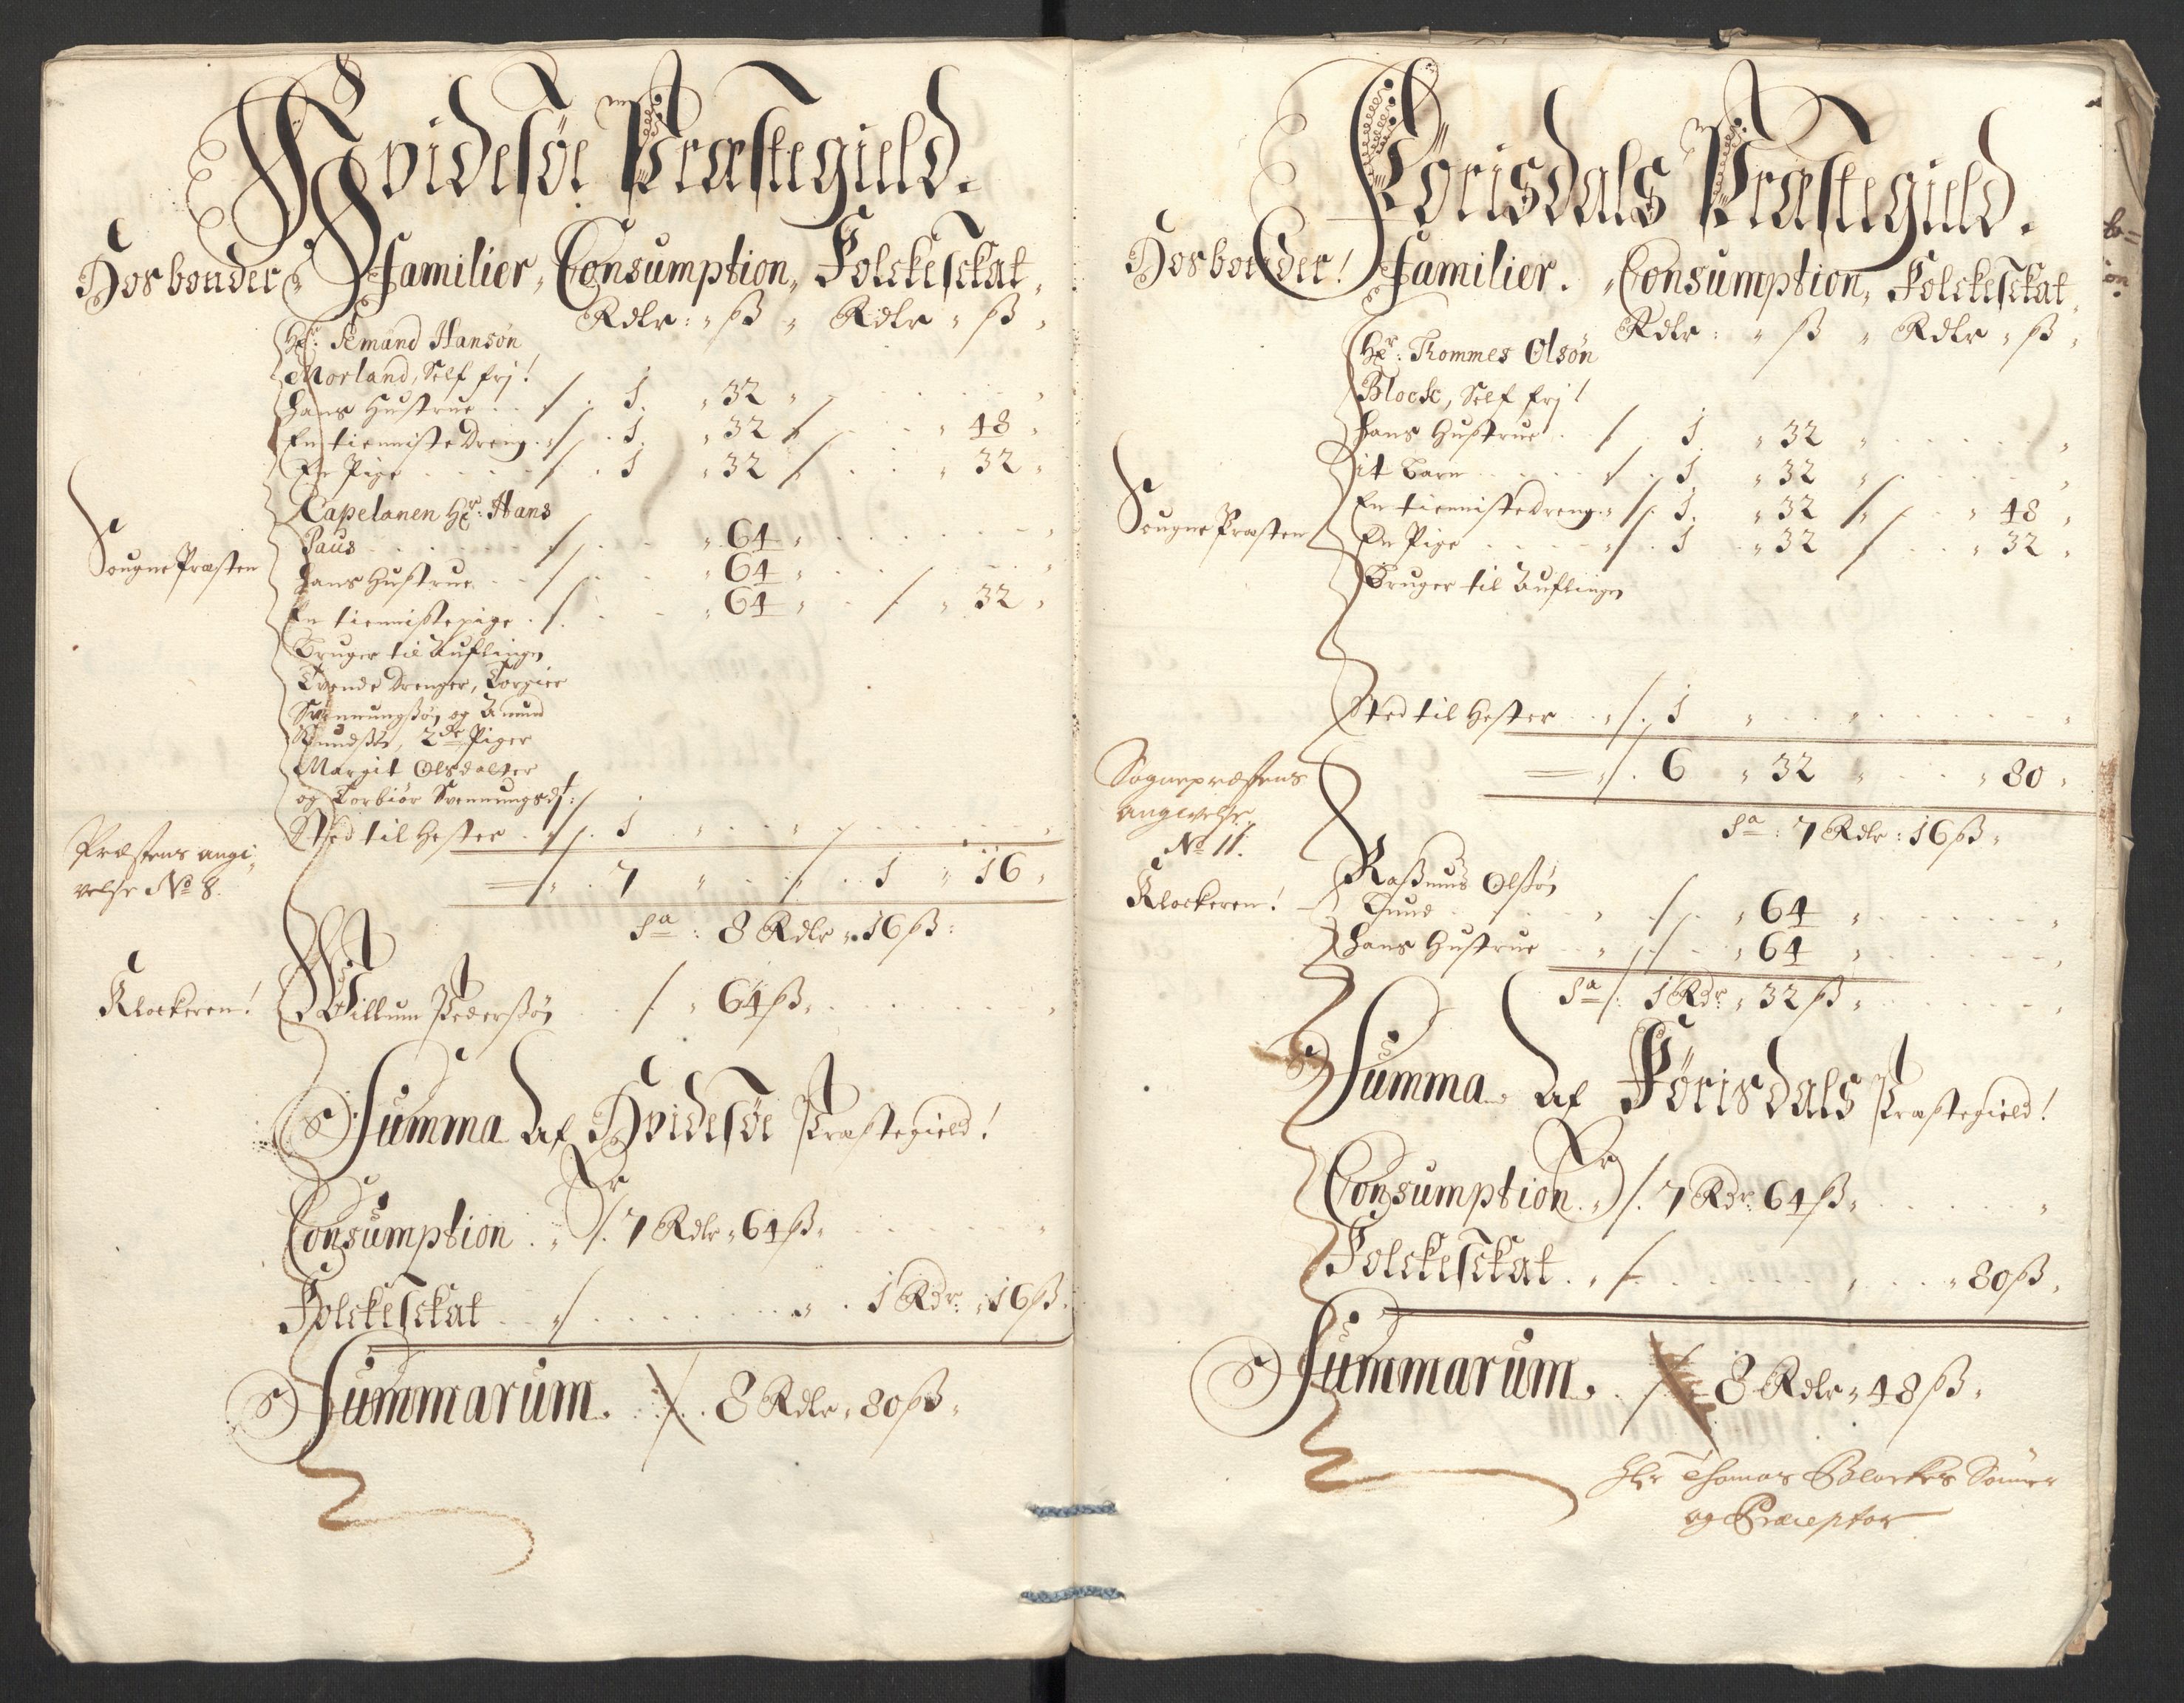 Hvidesøe Præstegield.
Hosbonder, Familier, Consumption, Folckeskat,
Rdlr: ß Rdlr ß
Hr: Amund Hansøn
Morland, Self frj!
Hans Hustrue . . /. 1. 32
En tienniste Dreng. /. 1. 32 /. 48
En Pige . . . /. 1 32 /. 32
Capelanen Hr: Hans
Paus . . . /. 64
Hans Hustrue . . /. 64
En tienniste pige . /. 64 / 32
Bruger til Auflingen
Tvende Drenger, Torgier
Svennungsøn og Amund
2de Piger
Margit Olsdatter
og Torbiør Svennungsdt:
Sted til Hester . /. 1
SougnePræsten
Præstens angi-
velse No 8.
/. 7 /. 1 16
Sa: 8 Rdlr 16 ß:
Klockeren!
Willum Pedersøn / 64 ß
Summa Af Hvidesøe Præstegield!
Consumption /. 7 Rdlr 64 ß
Folckeskat / 1 Rdr: 16 ß.
Summarum. /. 8 Rdlr 80 ß
Førisdals Præstegield.
Hosbonder! Familier. Consumption, Folckeskat
Rdlr: ß Rdlr ß
Hr: Thommes Olsøn
Block, Self frj!
Hans Hustrue . / 1. 32
it Barn . . . /. 1. 32
En tienniste dreng. /. 1. 32 /. 48
En Pige . . . /. 1 32 / 32
Bruger til Auflingen
SougnePræsten
Sted til Hester . . /. 1
/. 6 32 80
Sa: 7 Rdlr: 16 ß
Sognepræstens
angivelse
No 11.
Klockeren!
Rasmus Olsøn
Lund . . . /. 64
Hans Hustrue . /. 64
Sa /. 1 Rdr 32 ß
Summa Af Førisdals Præstegield!
Consumption. /. 7 Rdr: 64 ß
Folckeskat . / 80 ß
Summarum. / 8 Rdlr 48 ß
Hr Thomas Blockes Sønner
og Præceptor